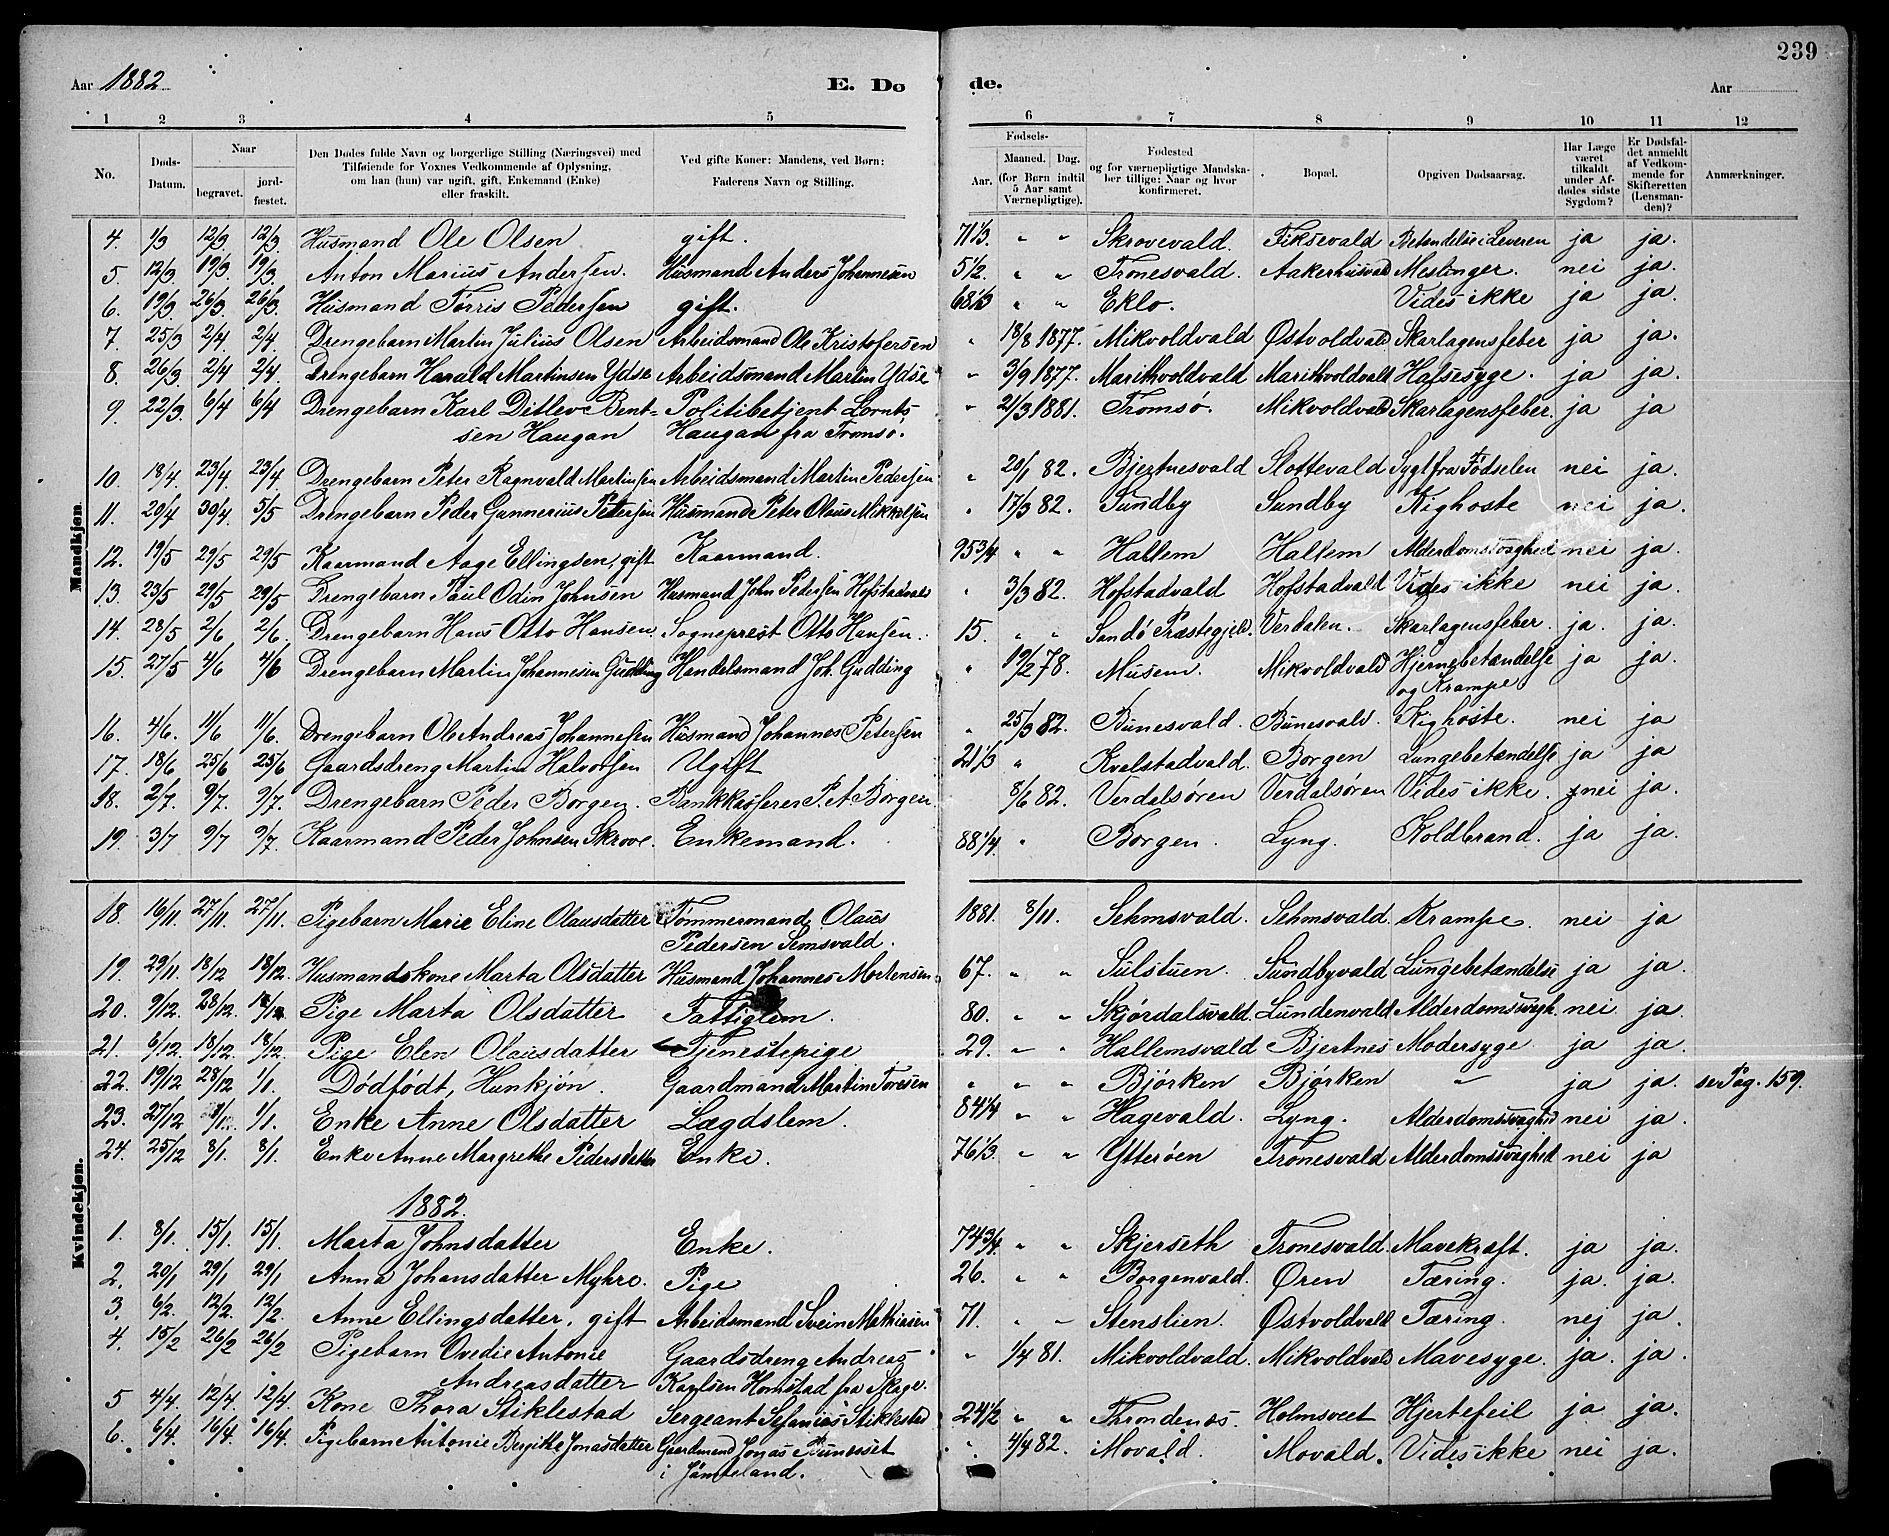 239
Aar 1882. E. Dø de. Aar
1 2 3 4 5 6 7 8 9 10 11 12
No. Døds-Datum. Naar begravet. jord-fæstet. Den Dødes fulde Navn og borgerlige Stilling (Næringsvei) med Tilføiende for Voxnes Vedkommende af Oplysning, om han (hun) var ugift, gift, Enkemand (Enke) eller fraskilt. Ved gifte Koner: Mandens, ved Børn: Faderens Navn og Stilling. Fødsels- Aar. Maaned. Dag. (for Børn indtil 5 Aar samt Værnepligtige). Fødested og for værnepligtige Mandskaber tillige: Naar og hvor konfirmeret. Bopæl. Opgiven Dødsaarsag. Har Læge været tilkaldt under Afdødes sidste Sygdom? Er Dødsfaldet anmeldt af Vedkommende for Skifteretten (Lensmanden)? Anmærkninger.
Mandkjøn.
4. 1/3 12/3 12/3 Husmand Ole Olsen gift. 71 1/3. " " Skrovevald. Fiksevald Betændelse i Leveren ja ja.
5. 12/3 19/3 19/3 Anton Marius Andersen. Husmand Anders Johannesen 5 1/2. " " Tronesvald. Aakerhusvald Meslinger. nei ja.
6. 19/3 26/3 26/3 Husmand Tørris Pedersen gift. 68 1/3 " " Eklo. Vides ikke ja ja.
7. 25/3 2/4 2/4 Drengebarn Martin Julius Olsen Arbeidsmand Ole Kristofersen " 18/8 1877. Mikvoldvald Østvoldvald Skarlagensfeber ja ja.
8. 26/3 2/4 2/4. Drengebarn Harald Martinsen Ydse Arbeidsmand Martin Ydse " 3/9 1877. Marithvoldvald Marithvoldvald Halsesyge. ja ja
9. 22/3 6/4 6/4 Drengebarn Karl Ditlev Bent- Politibetjent Lornts " 21/3 1881. Tromsø. Mikvoldvald Skarlagensfeber. ja ja
sen Haugan Haugan fra Tromsø.
10. 18/4. 23/4. 23/4 Drengebarn Peter Ragnvald Martinsen Arbeidsmand Martin Pedersen " 20/1 82. Bjertnesvald Slottevald Sygl. fra Fødselen nei ja.
11. 20/4 30/4. 5/5 Drengebarn Peder Gunnerius Petersen Husmand Peter Olaus Mikkelsen " 17/3 82. Sundby Sundby Kighoste nei ja.
12. 19/5 29/5 29/5 Kaarmand Aage Ellingsen, gift Kaarmand. 95 3/4 " " Hallem Hallem Alderdomssvaghed nei ja.
13. 23/5 29/5 29/5 Drengebarn Paul Odin Johnsen Husmand John Pedersen Hofstadvald " 3/3 82. Hofstadvald Hofstadvald Vides ikke nei ja.
14. 28/5 2/6 2/6. Drengebarn Hans Otto Hansen. Sogneprest Otto Hansen. 15. " " Sandö Præstegjeld. Verdalen. Skarlagensfeber. ja. ja.
15. 27/5 4/6 4/6 Drengebarn Martin Johannesen Gudding Handelsmand Joh. Gudding " 19/2 78. Musem. Mikvoldvald Hjernebetændelse ja ja.
og Krampe
16. 4/6. 11/6 11/6. Drengebarn Ole Andreas Johannesen Husmand Johannes Petersen " 25/3 82. Bunesvald. Bunesvald. Kighoste. nei ja
17. 18/6 25/6 25/6 Gaardsdreng Martin Halvorsen Ugift 21 1/3 " Kvelstadvald. Borgen Lungebetændelse ja ja
18. 2/7. 9/7. 9/7. Drengebarn Peder Borgen. Bankkasserer P. A Borgen. 8/6 82. Verdalsören Verdalsören Vides ikke. nei ja.
19. 3/7 9/7 9/7. Kaarmand Peder Johnsen Skrove. Enkemand. 88 1/4. " Borgen. Lyng. Koldbrand. ja ja.
Kvindekjøn.
18. 16/11. 27/11. 27/11. Pigebarn Marie Eline Olausdatter Tømmermand Olaus 1881. 8/11. Sehmsvald. Sehmsvald. Krampe. nei ja
Pedersen Semsvald.
19. 29/11. 18/12 18/12. Husmandskone Marta Olsdatter Husmand Johannes Mortensen 67. " " Sulstuen. Sundbyvald Lungebetændelse ja ja
20. 9/12. 28/12. Pige Marta Olsdatter Fattiglem. 80. " " Skjördalsvald. Lundenvald Alderdomssvagh. nei ja.
21. 6/12. 18/12. 18/12. Pige Elen Olausdatter Tjenestepige 29. " " Hallemsvald Bjertnes Modersyge ja ja
22. 19/12 28/12 1/1. Dödfödt, Hunkjön. Gaardmand Martin Toresen " " Björken Björken " ja ja. se Pag. 159.
23. 27/12 1/1. Enke Anne Olsdatter Lægdslem. 84 1/4 " " Hagevald. Lyng. Alderdomssvaghed nei ja.
24. 25/12 8/1. 8/1. Enke Anne Margrethe Pedersdatter Enke. 76 1/3. " " Ytterøen Tronesvald Alderdomssvaghed nei ja
1882.
1. 8/1. 15/1. 15/1. Marta Johnsdatter Enke. 74 3/4. " " Skjerseth Tronesvald. Mavekræft. ja ja.
2. 20/1 29/1 29/1 Anna Johansdatter Myhre. Pige 26. " " Borgenvald. Øren Tæring. ja. ja.
3. 6/2. 12/2. 12/2 Anne Ellingsdatter, gift Arbeidsmand Svein Mathiasen 71. " " Stenslien. Østvoldvald Tæring. nej ja.
4. 15/2 26/2 26/2 Pigebarn Ovedie Antonie Gaardsdreng Andreas " 1/4 81. Mikvoldvald. Mikvoldvald Mavesyge. ja. ja.
Andreasdatter Karlsen Homstad fra Skage.
5 4/4. 12/4. 12/4. Kone Thora Stiklestad Sergeant Sefanias Stiklestad 24 1/2 " " Throndenæs. Holmsveet Hjertefeil ja ja.
6. 6/4. 16/4. 16/4. Pigebarn Antonie Bergitte Jonasdatter Gaardmand Jonas Bunesset 4/4 82. Movald. Movald. Vides ikke nei ja.
i Jämteland.